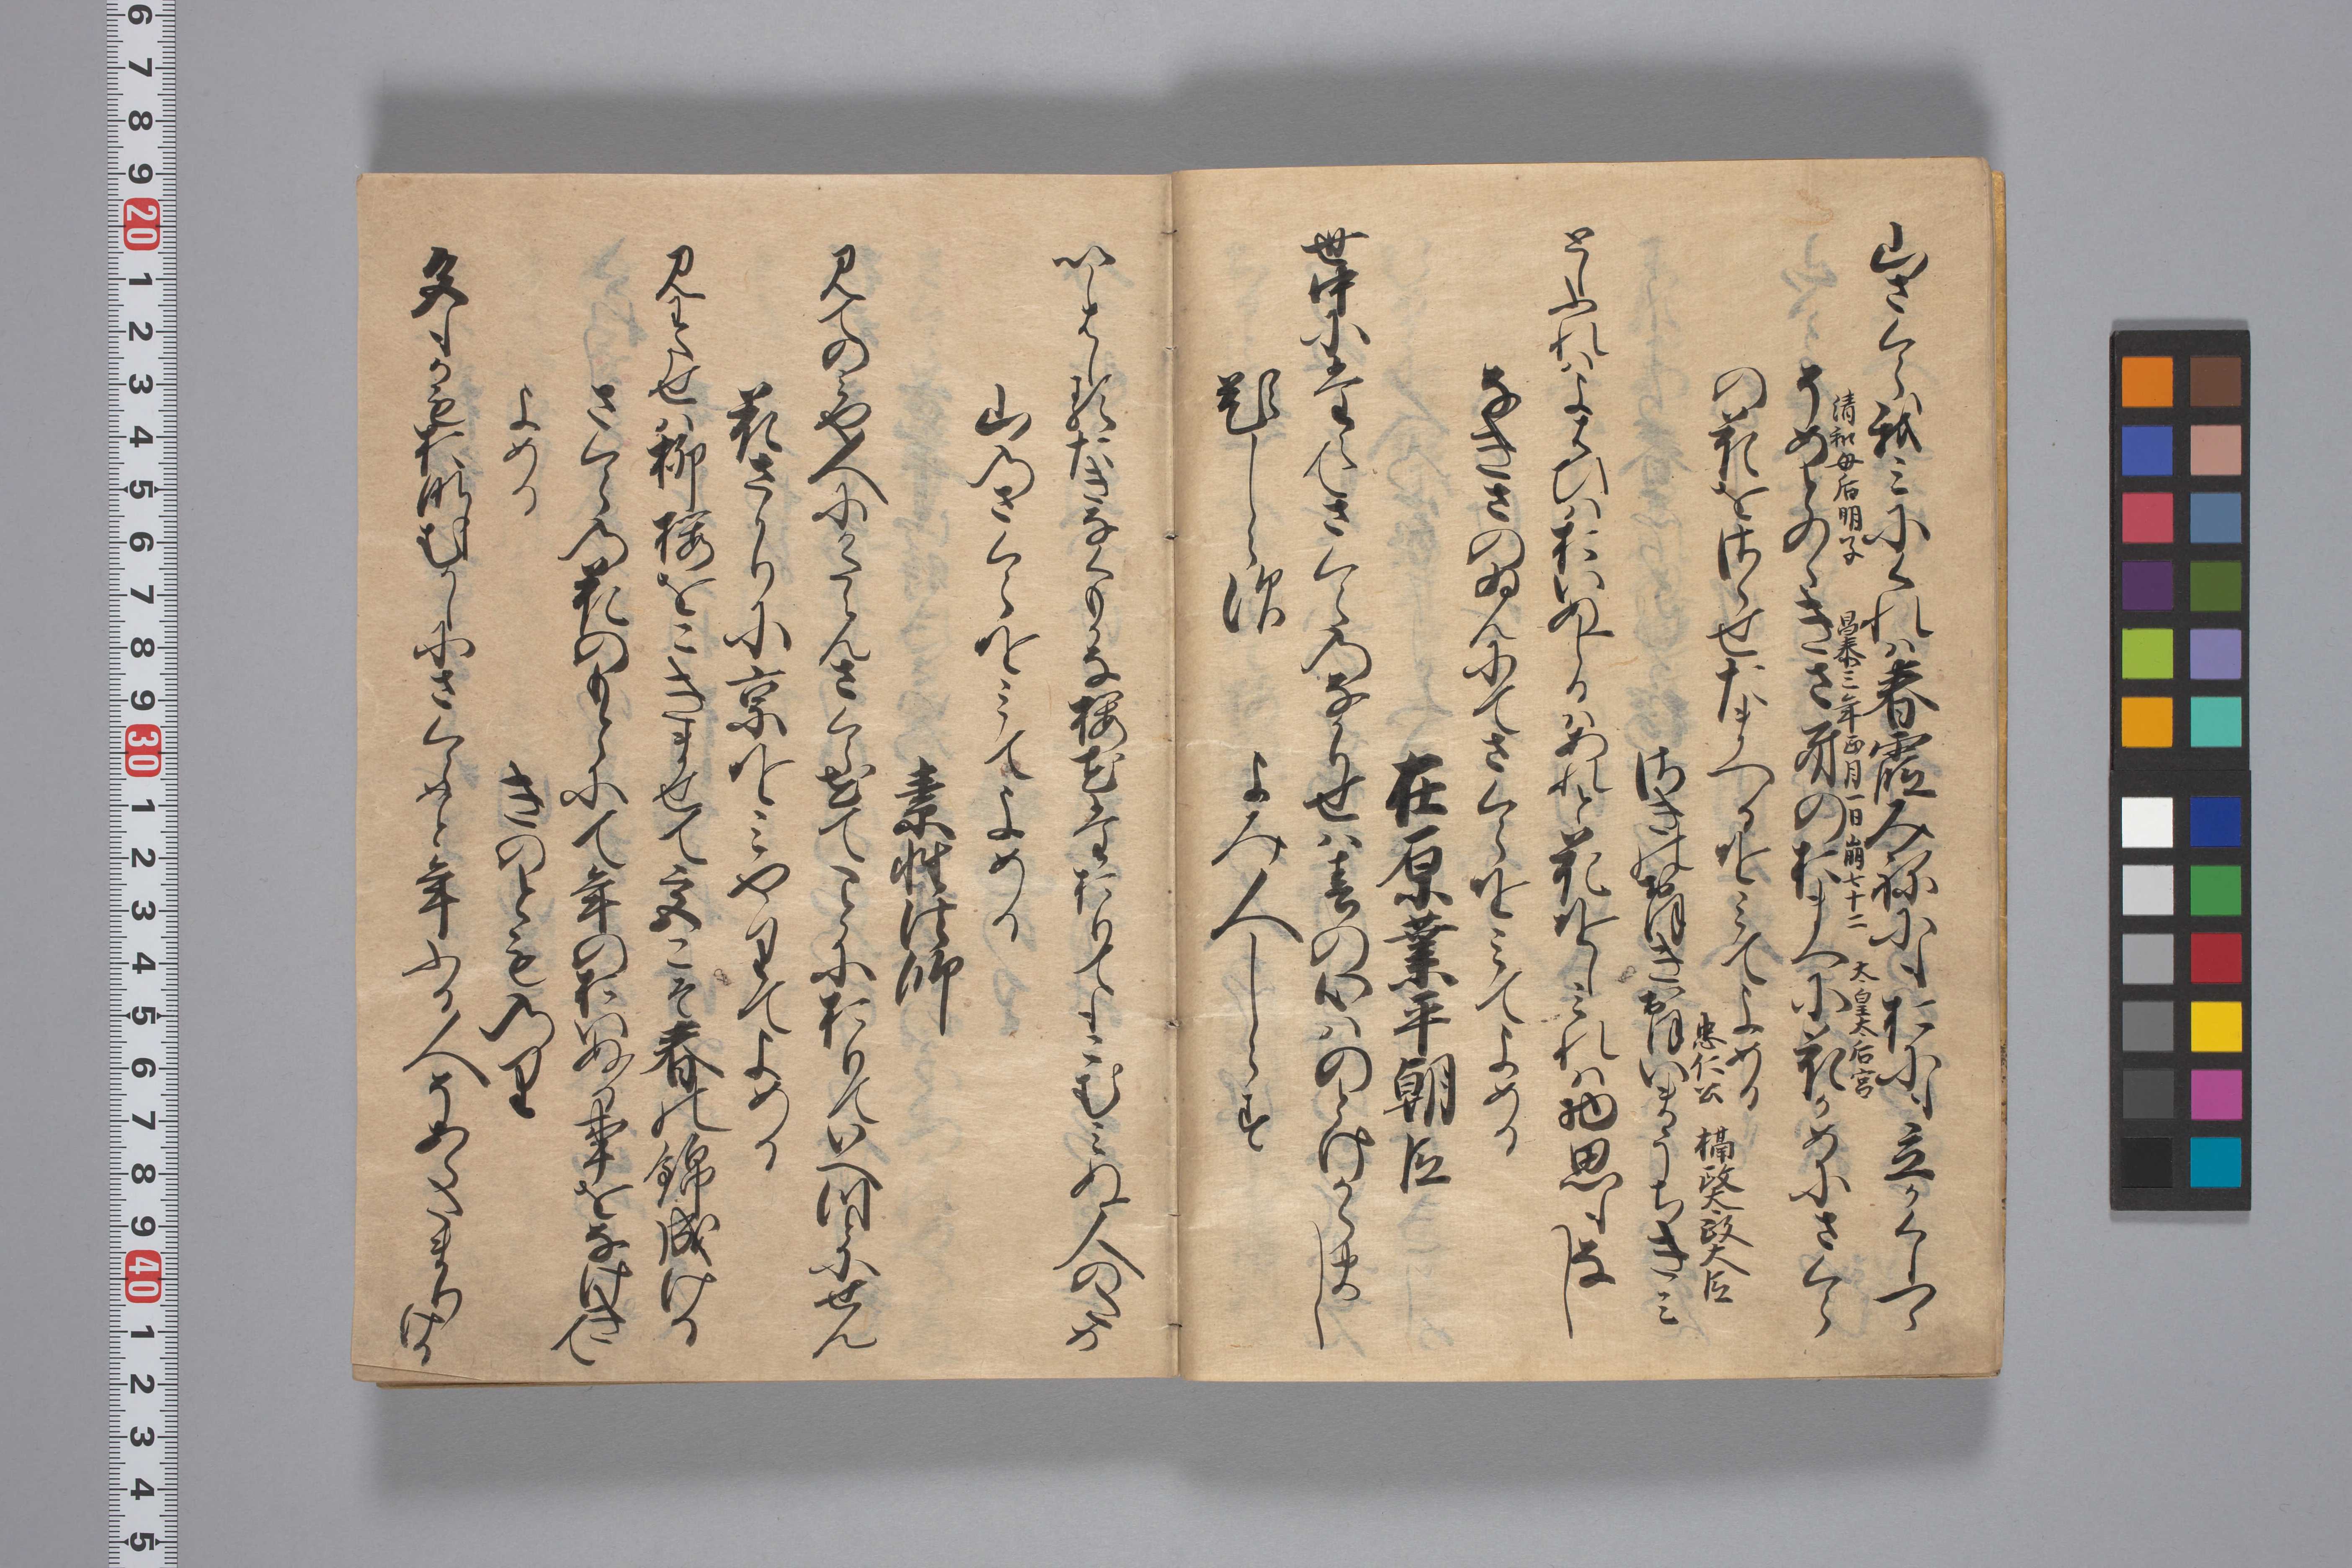 山さくら我みにくれは春霞みねにもおにも立かくしつゝ
清和母后明子　昌泰三年正月一日崩七十二　太皇太后宮
そめとのゝきさきのおまへに花かめにさくら
の花をさゝせたまへるをみてよめる
忠仁公　摂政太政大臣
さきのおほきおほいまうちきみ
としふれはよはひはおいぬしかはあれと花をしみれは物思もなし
なきさのゐんにてさくらをみてよめる
在原業平朝臣
世中にたえてさくらのなかりせは春の心はのとけからまし
題しらす　よみ人しらす
いしはしるたきなくもかな桜花たおりてもこむみぬ人のため
山のさくらをみてよめる
素性法師
見てのみや人にかたらんさくら花てことにおりていへつとにせん
花さかりに京をみやりてよめる
見わたせは柳桜をこきませて宮こそ春の錦成ける
さくらの花のもとにて年のおいぬる事をなけきて
よめる
きのとものり
色もかもおなしむかしにさくらめと年ふる人そあらたまりける
6 7 8 9 20 1 2 3 4 5 6 7 8 9 30 1 2 3 4 5 6 7 8 9 40 1 2 3 4 5